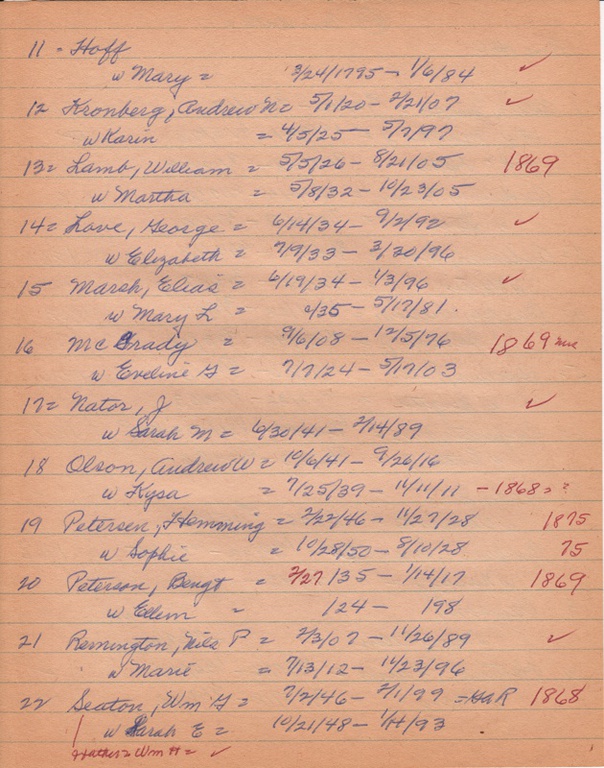 11 = Hoff
w Mary = 3/24/1795 - 1/6/84 ✓
12 Kronberg, Andrew N = 5/1/20 - 2/21/07 ✓
w Karin = 4/5/25 - 5/7/97
13 = Lamb, William = 5/5/26 - 8/21/05 1869
w Martha = 5/8/32 - 10/23/05
14 = Love, George = 6/14/34 - 9/2/92 ✓
w Elizabeth = 7/9/33 - 3/30/96
15 Marsh, Elias = 6/19/34 - 1/3/96 ✓
w Mary L = /35 - 5/17/81.
16 McGrady = 9/6/08 - 12/5/76 1869
w Eveline G = 7/7/24 - 5/17/03
17 = Nator, J ✓
w Sarah M = 6/30/41 - 2/14/89
18 Olson, Andrew W = 10/6/41 - 9/26/16
w Kysa = 7/25/39 - 11/11/11 - 1868 = ?
19 Petersen, Hemming = 2/22/46 - 11/27/28 1875
w Sophie = 10/28/50 - 8/10/28 75
20 Peterson, Bengt = 2/27/35 - 1/14/17 1869
w Ellen = /24 - /98
21 Remington, Nils P = 2/3/07 - 11/26/89 ✓
w Marie = 7/13/12 - 11/23/96
22 Seaton, Wm G = 7/2/46 - 2/1/99 = GAR 1868
w Sarah E = 10/21/48 - 1/14/93
Father = Wm H = ✓